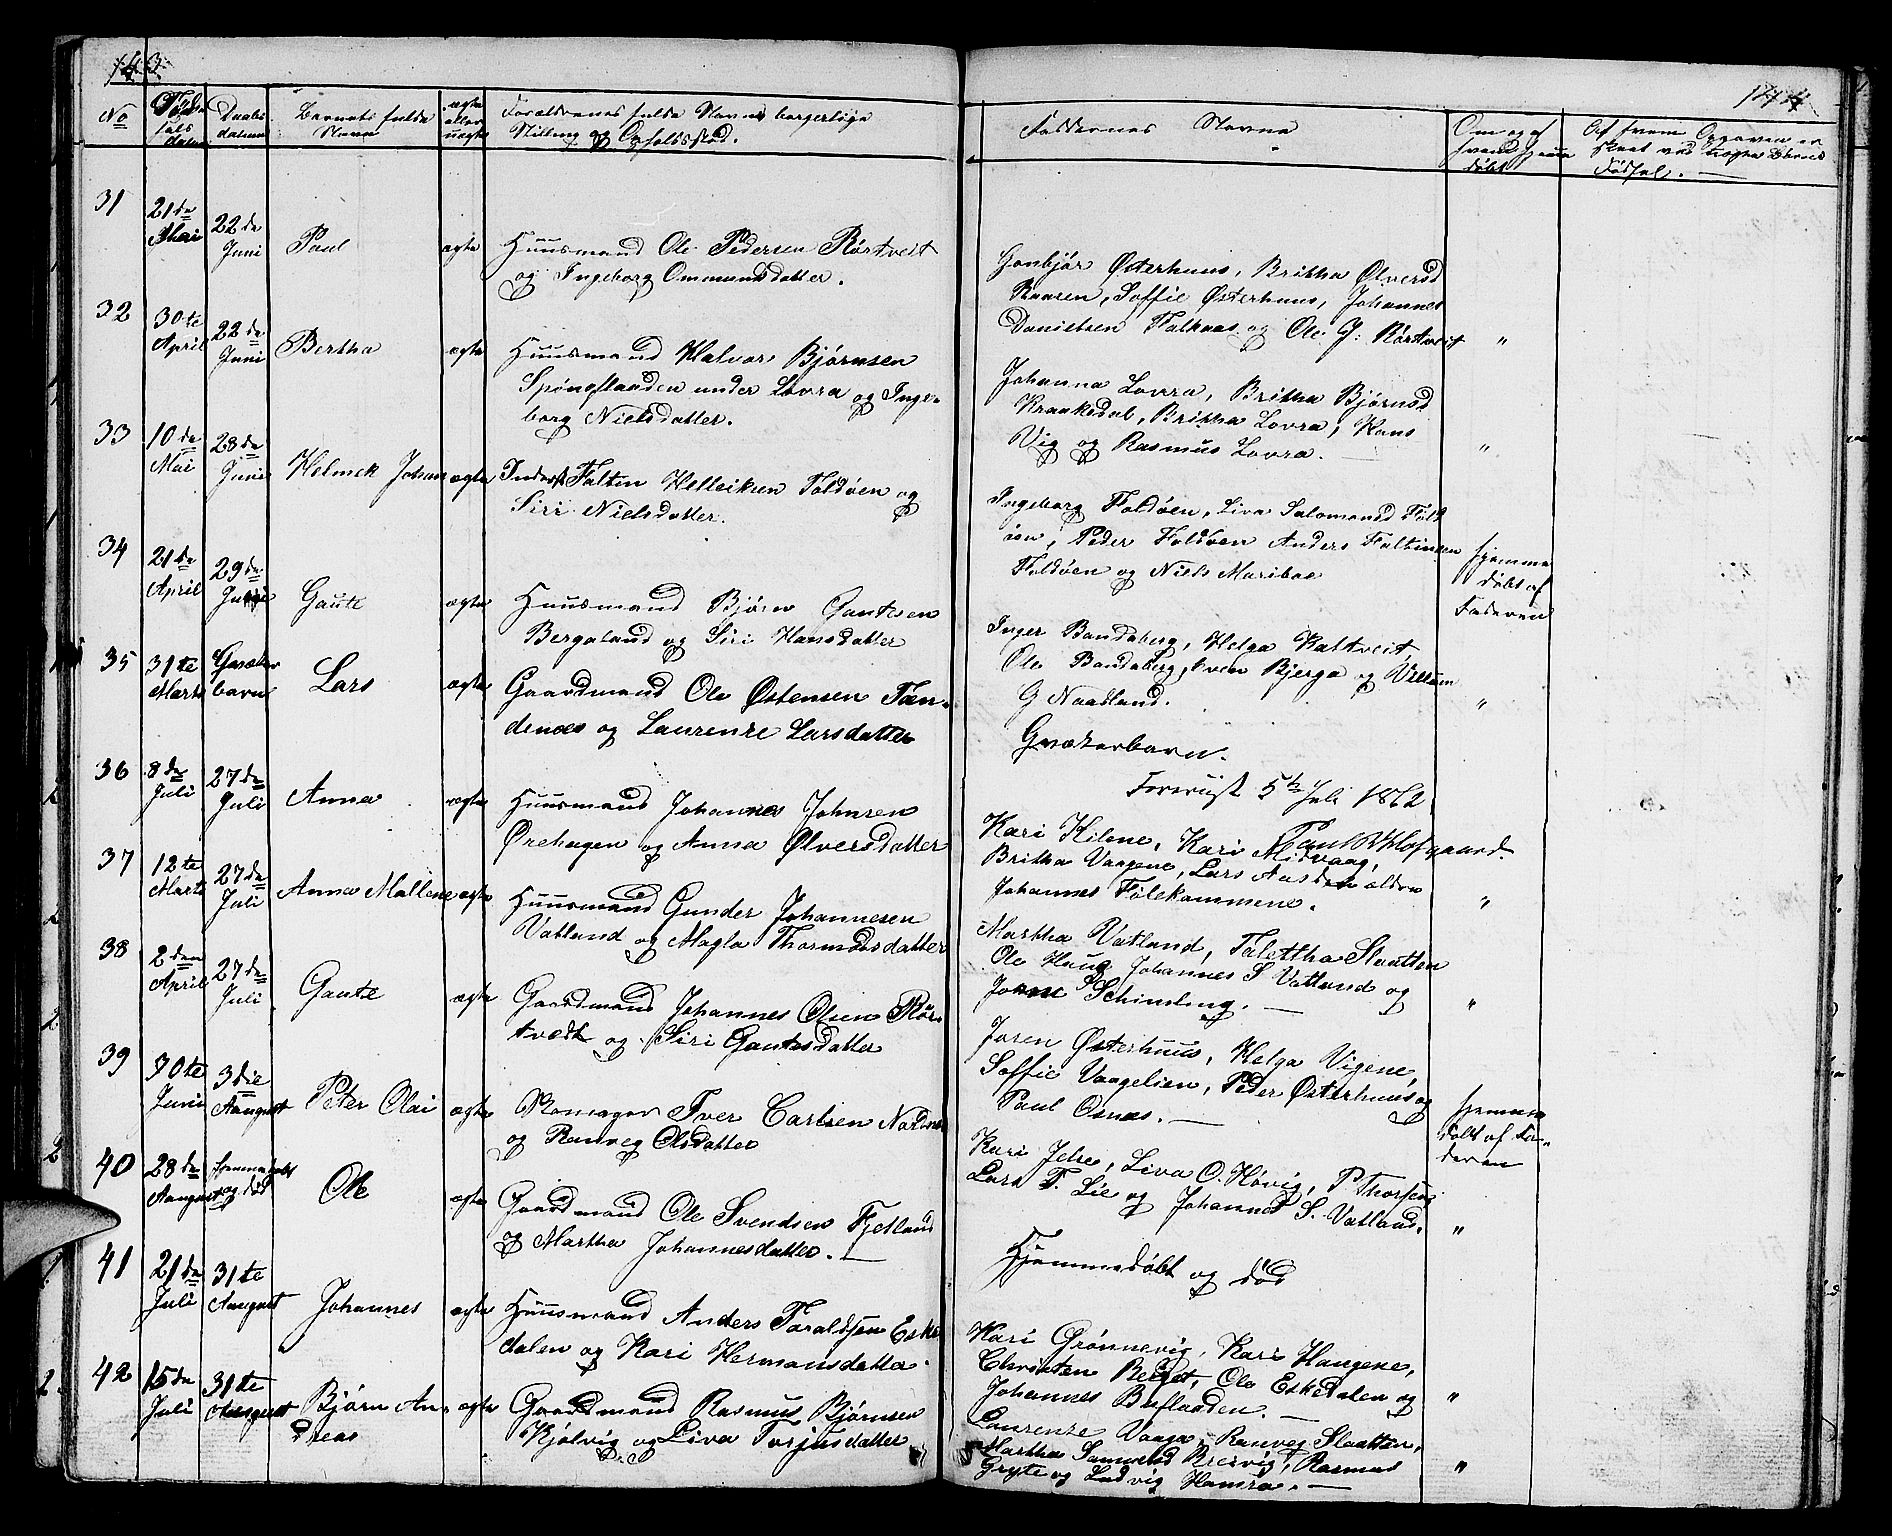 143.
No
Fødselsdatum
Daabsdatum
Barnets fulde Navn
ægte eller uægte
Forældrenes fulde Navne, borgerlige Stilling og Opholdssted.
31
21de Mai
22de Juni
Paul
ægte
Huusmand Ole Pedersen Rørtveit
og Ingeborg Ommundsdatter.
32
30te April
22de Juni
Bertha
ægte
Huusmand Halvor Bjørnsen
Spønsflaaden under Lovra og Inge-
borg Nielsdatter.
33
10de Mai
28de Juni
Helmek Johan
ægte
Inderst Falten Helleiksen Foldøen og
Siri Nielsdatter.
34
21de April
29de Juni
Gaute
ægte
Huusmand Bjørn Gautesen
Bergaland og Siri Hansdatter
35
31te Marts
Qvækerbarn
Lars
ægte
Gaardmand Ole Østensen Tøn-
denæs og Laurenze Larsdatter
36
8de Juli
27de Juli
Anna
ægte
Huusmand Johannes Johnsen
Ørehagen og Anna Ølversdatter
37
12te Marts
27de Juli
Anna Mallene
ægte
Huusmand Gunder Johannesen
Vatland og Magla Thormodsdatter
38
2den April
27de Juli
Gaute
ægte
Gaardmand Johannes Olsen Rør-
tvedt og Siri Gautesdatter
39
30te Juni
3die August
Peter Olai
ægte
Iver Carlsen
og Ranveg Olsdatter
40
28de August
Hjemmedøbt og død
Ole
ægte
Gaardmand Ole Svendsen Fjetland
og Martha Johannesdatter.
41
21de Juli
31te August
Johannes
ægte
Huusmand Anders Taraldsen Eske-
dalen og Kari Hermansdatter.
42
15de Juli
31te August
Bjørn An-
dreas
ægte
Gaardmand Rasmus Bjørnsen
Kjølvig og Liva Torjusdatter
144
Faddernes Navne
Om og af hvem hjemmedøbt
Af hvem Opgaven er skeet ved Barnets Fødsel.
Gonbjør Østerhuus, Britha Ølversd
Raaren, Soffie Østerhuus, Johannes
Danielsen Falkaas og Ole J. Rørtveit "
Johanna Lovra, Britha Bjørnsd
Kraakedal, Britha Lovra, Hans
Vig og Rasmus Lovra. "
Ingeborg Foldøen, Liva Salomonsd Fold-
øen, Peder Foldøen Anders Faltinsen
Foldøen og Niels Mariboe
hjemme
døbt af
Faderen
Inger Bandaberg, Helga Kaltveit,
Ole Bandaberg, Sven Bjerga og Villum
G Naadland. "
Qvækerbarn.
Forevist 5te Juli 1862
Paul W Hofgaard.
Kari Hilene, Kari Midvaag,
Britha Vaagene, Lars Aasden ældre
Johannes Følekammene. "
Martha Vatland, Talettha Slaatten
Ole Haug Johannes S Vatland og
Schimeling. "
Joren Østerhuus, Helga Vigene,
Soffie Vaagelien, Peder Østerhuus og
Paul Osnæs.
hjemme
døbt af Fa-
deren
Kari Jelse, Liva O. Høvig, P Thorsen,
Lars T. Lie og Johannes S. Vatland. "
Hjemmedøbt og død
Kari Grønnevig, Kari Haugene,
Christen Berget, Ole Eskedalen og
Johannes Buflaaden. "
Laurenze Vaage, Ranveg Slaatten,
Martha Samuelsd Breivig, Rasmus
Gryte og Ludvig Hamra. "